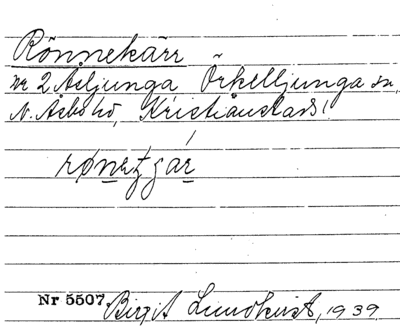 Rönnekärr
nr 2 Åsljunga Örkelljunga sn,
N. Åsbo hd, Kristianstads l
Nr 5507. Birgit Lundkvist, 1939